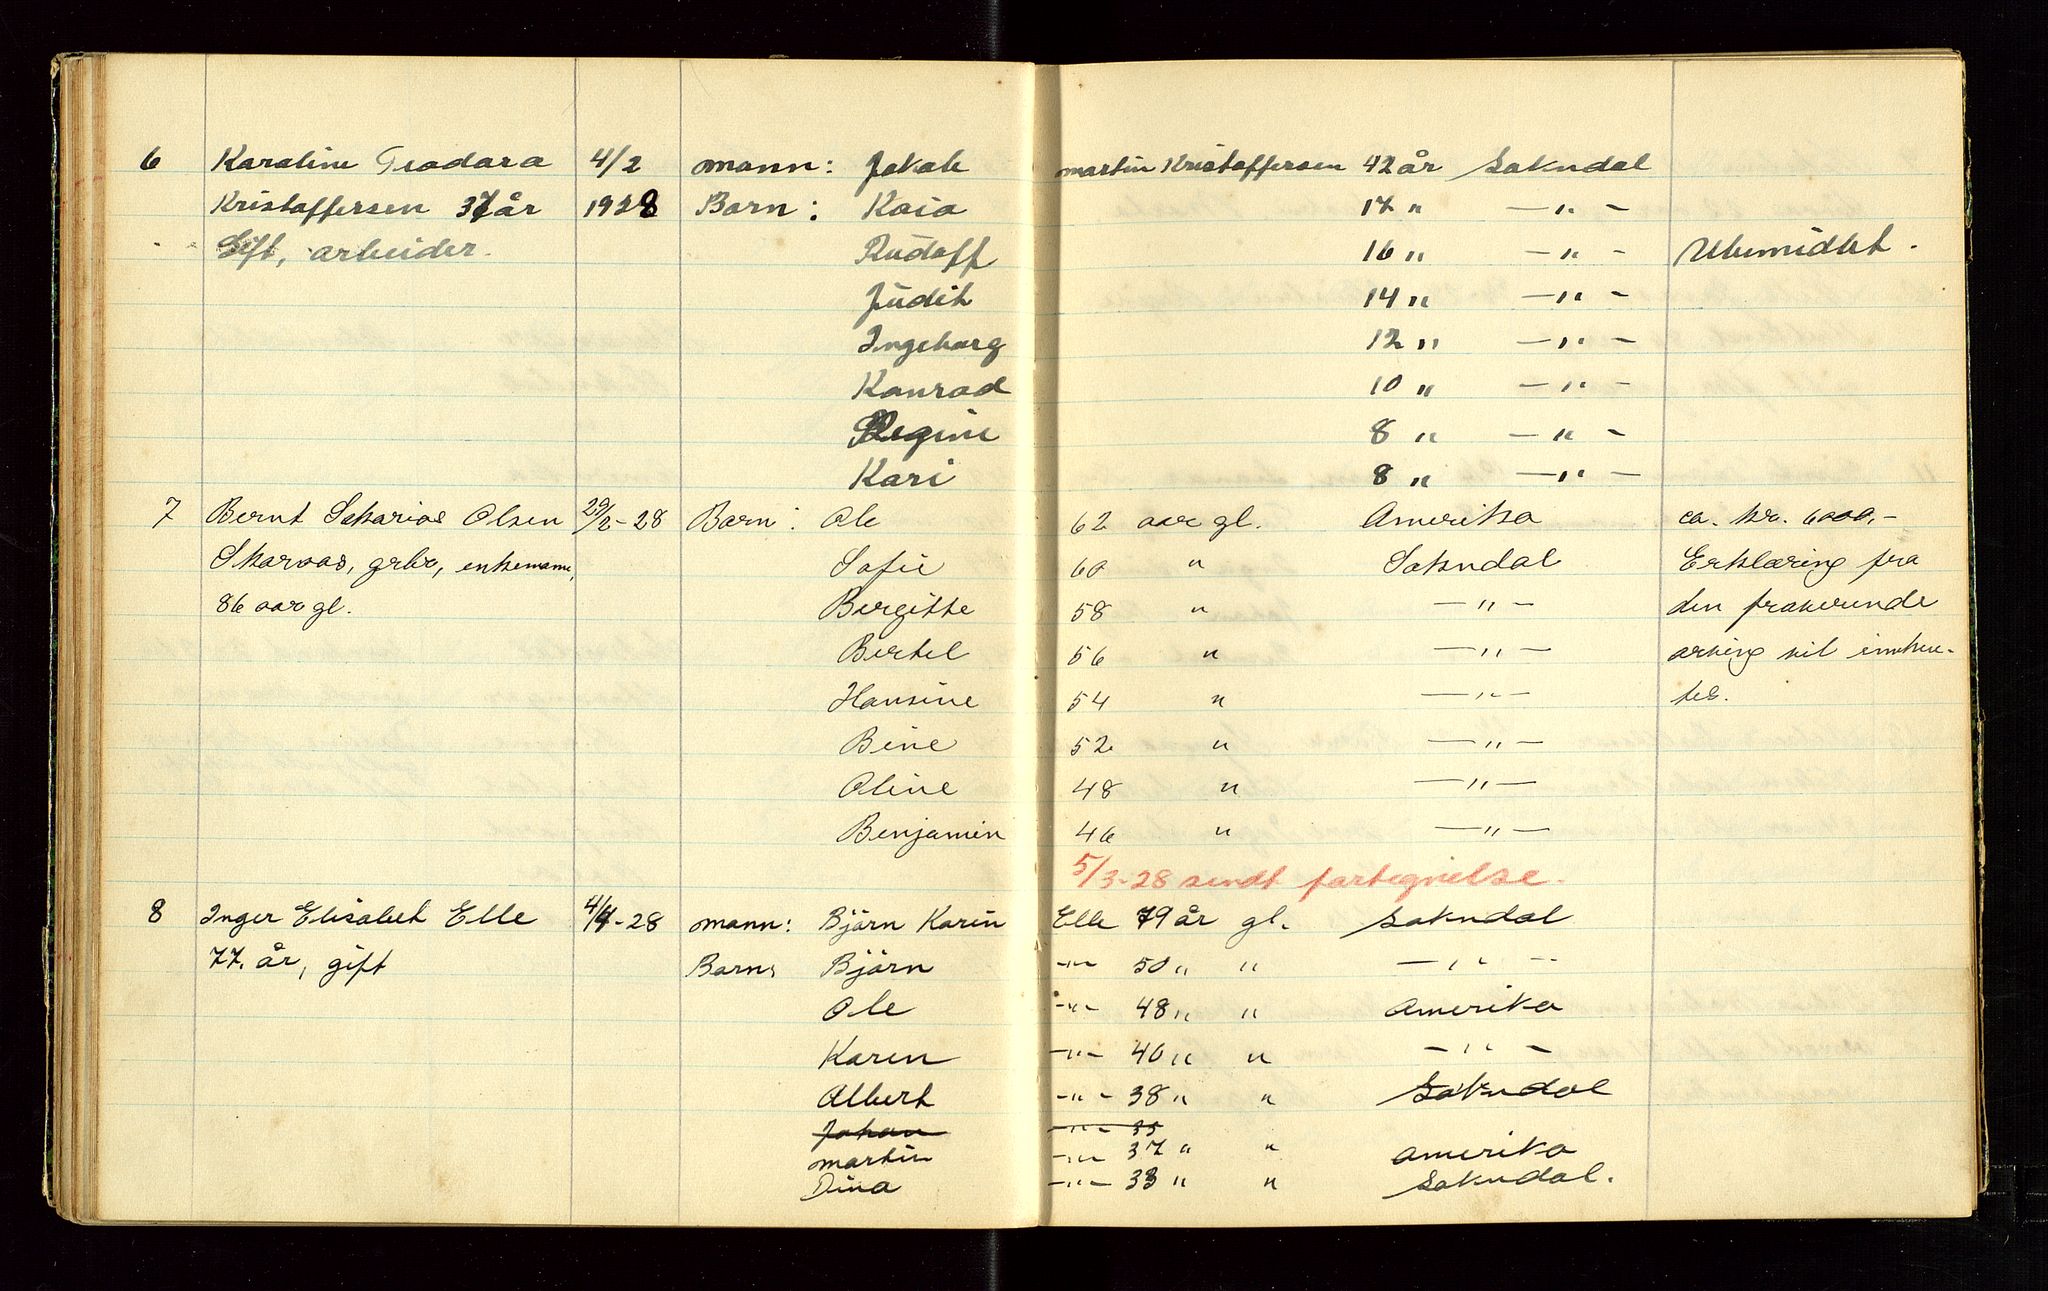 6 Karoline Teodora 4/2 mann: Jakob martin Kristoffersen 42 år Sokndal
Kristoffersen 37 år 1928 Barn: Kaia 17 " — " —
Gift, arbeider. Rudolf 16 " — " — Ubemidlet.
Judit 14 " — " —
Ingeborg 12 " — " —
Konrad 10 " — " —
Regine 8 " — " —
Kari 8 " — " —
7 Bernt Sakarias Olsen 29/2-28 Barn: Ole 62 aar gl. Amerika ca. kr. 6000,-
Skaraas, grbr, enkemann, Sofie 60 " Sokndal Erklæring fra
86 aar gl. Birgitte 58 " — " — den fraværende
Bertel 56 " — " — arving vil innhen-
Hansine 54 " — " — tes.
Bine 52 " — " —
Oline 48 " — " —
Benjamin 46 " — " —
5/3-28 sendt fortegnelse.
8 Inger Elisabet Elle 4/4-28 mann: Björn Karin Elle 79 år gl. Sokndal
77 år, gift Barn: Björn — " — 50 " " — " —
Ole — " — 48 " " Amerika
Karen — " — 40 " " — " —
Albert — " — 38 " " Sokndal
Johan — " — 35
martin — " — 37 " " Amerika
Dina — " — 33 " " Sokndal.